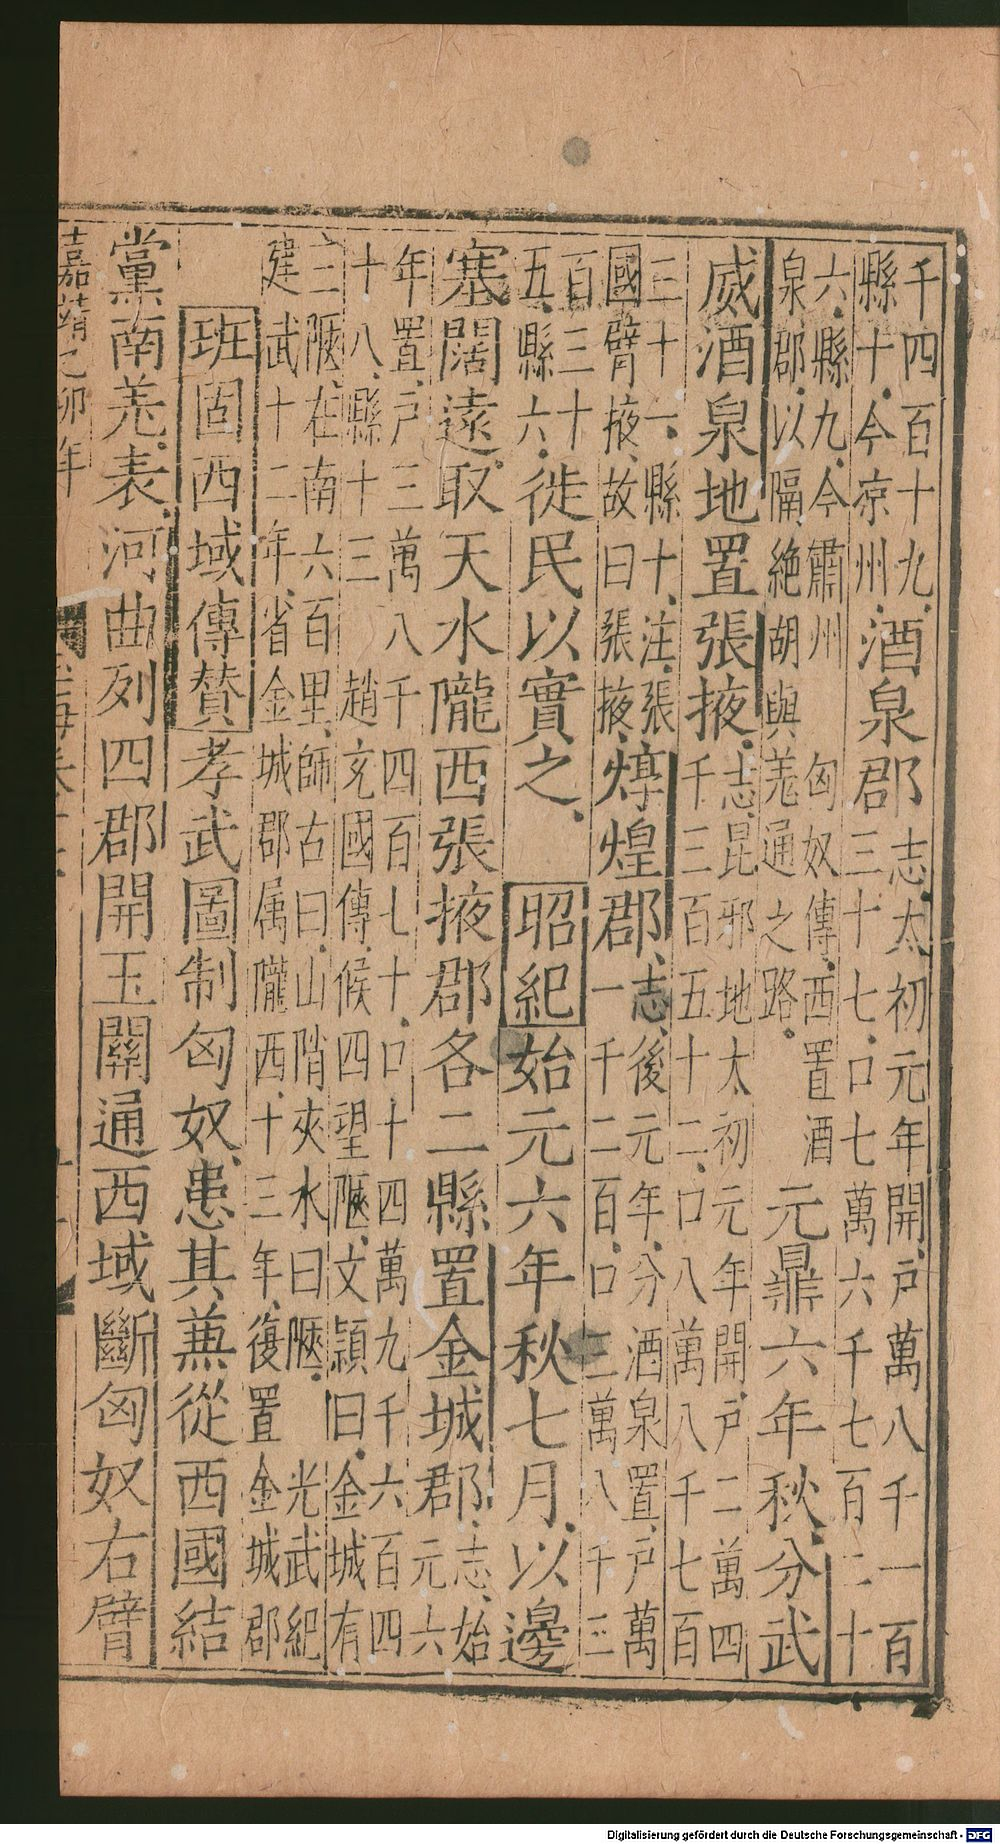 千四百十九
縣十今凉州酒泉郡志太初元年開戶萬八千一百
三十七口七萬六千七百二十
六縣九今肅州匈奴傳西置酒
泉郡以隔絶胡與羗通之路元鼎六年秋分武
威酒泉地置張掖志昆邪地太初元年開戶二萬四
千三百五十二口八萬八千七百
三十一縣十注張
國臂掖故曰張掖焞煌郡志後元年分酒泉置戶萬
一千二百口三萬八千三
百三十
五縣六徙民以實之昭紀始元六年秋七月以邊
塞闊遠取天水隴西張掖郡各二縣置金城郡志始
元六
年置戶三萬八千四百七十口十四萬九千六百四
十八縣十三趙充國傳候四望陿文頴曰金城有
三陿在南六百里師古曰山陗夾水曰陿光武紀
建武十二年省金城郡属隴西十三年復置金城郡
班固西域傳賛孝武圖制匈奴患其兼從西國結
黨南羗表河曲列四郡開玉關通西域斷匈奴右臂
嘉靖己卯年
Digitalisierung gefördert durch die Deutsche Forschungsgemeinschaft - DFG